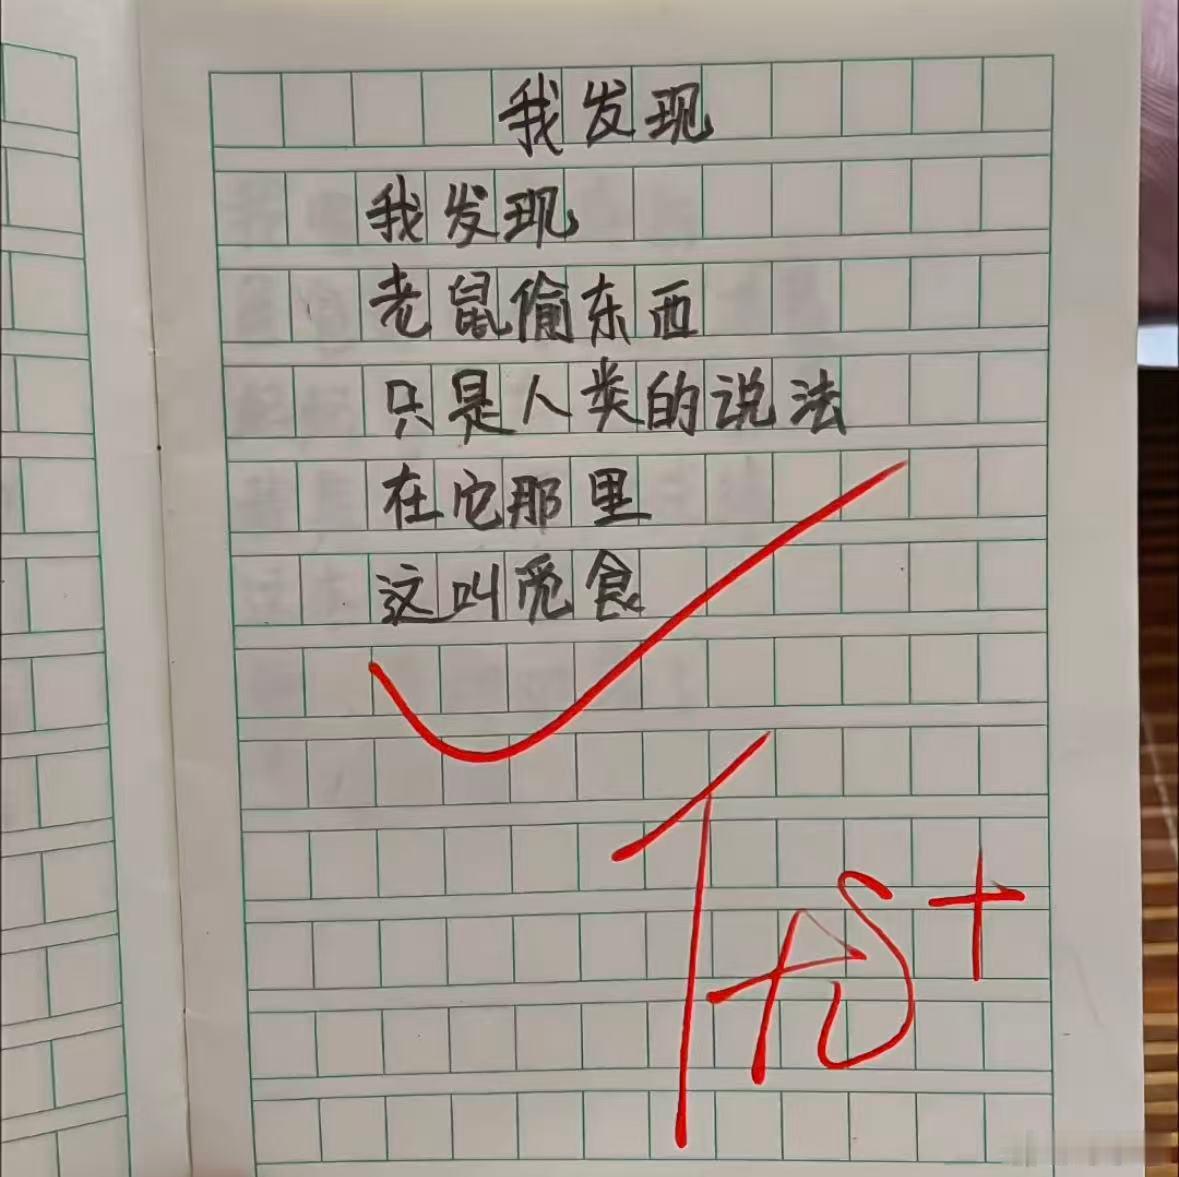 我发现
我发现
老鼠偷东西
只是人类的说法
在它那里
这叫觅食